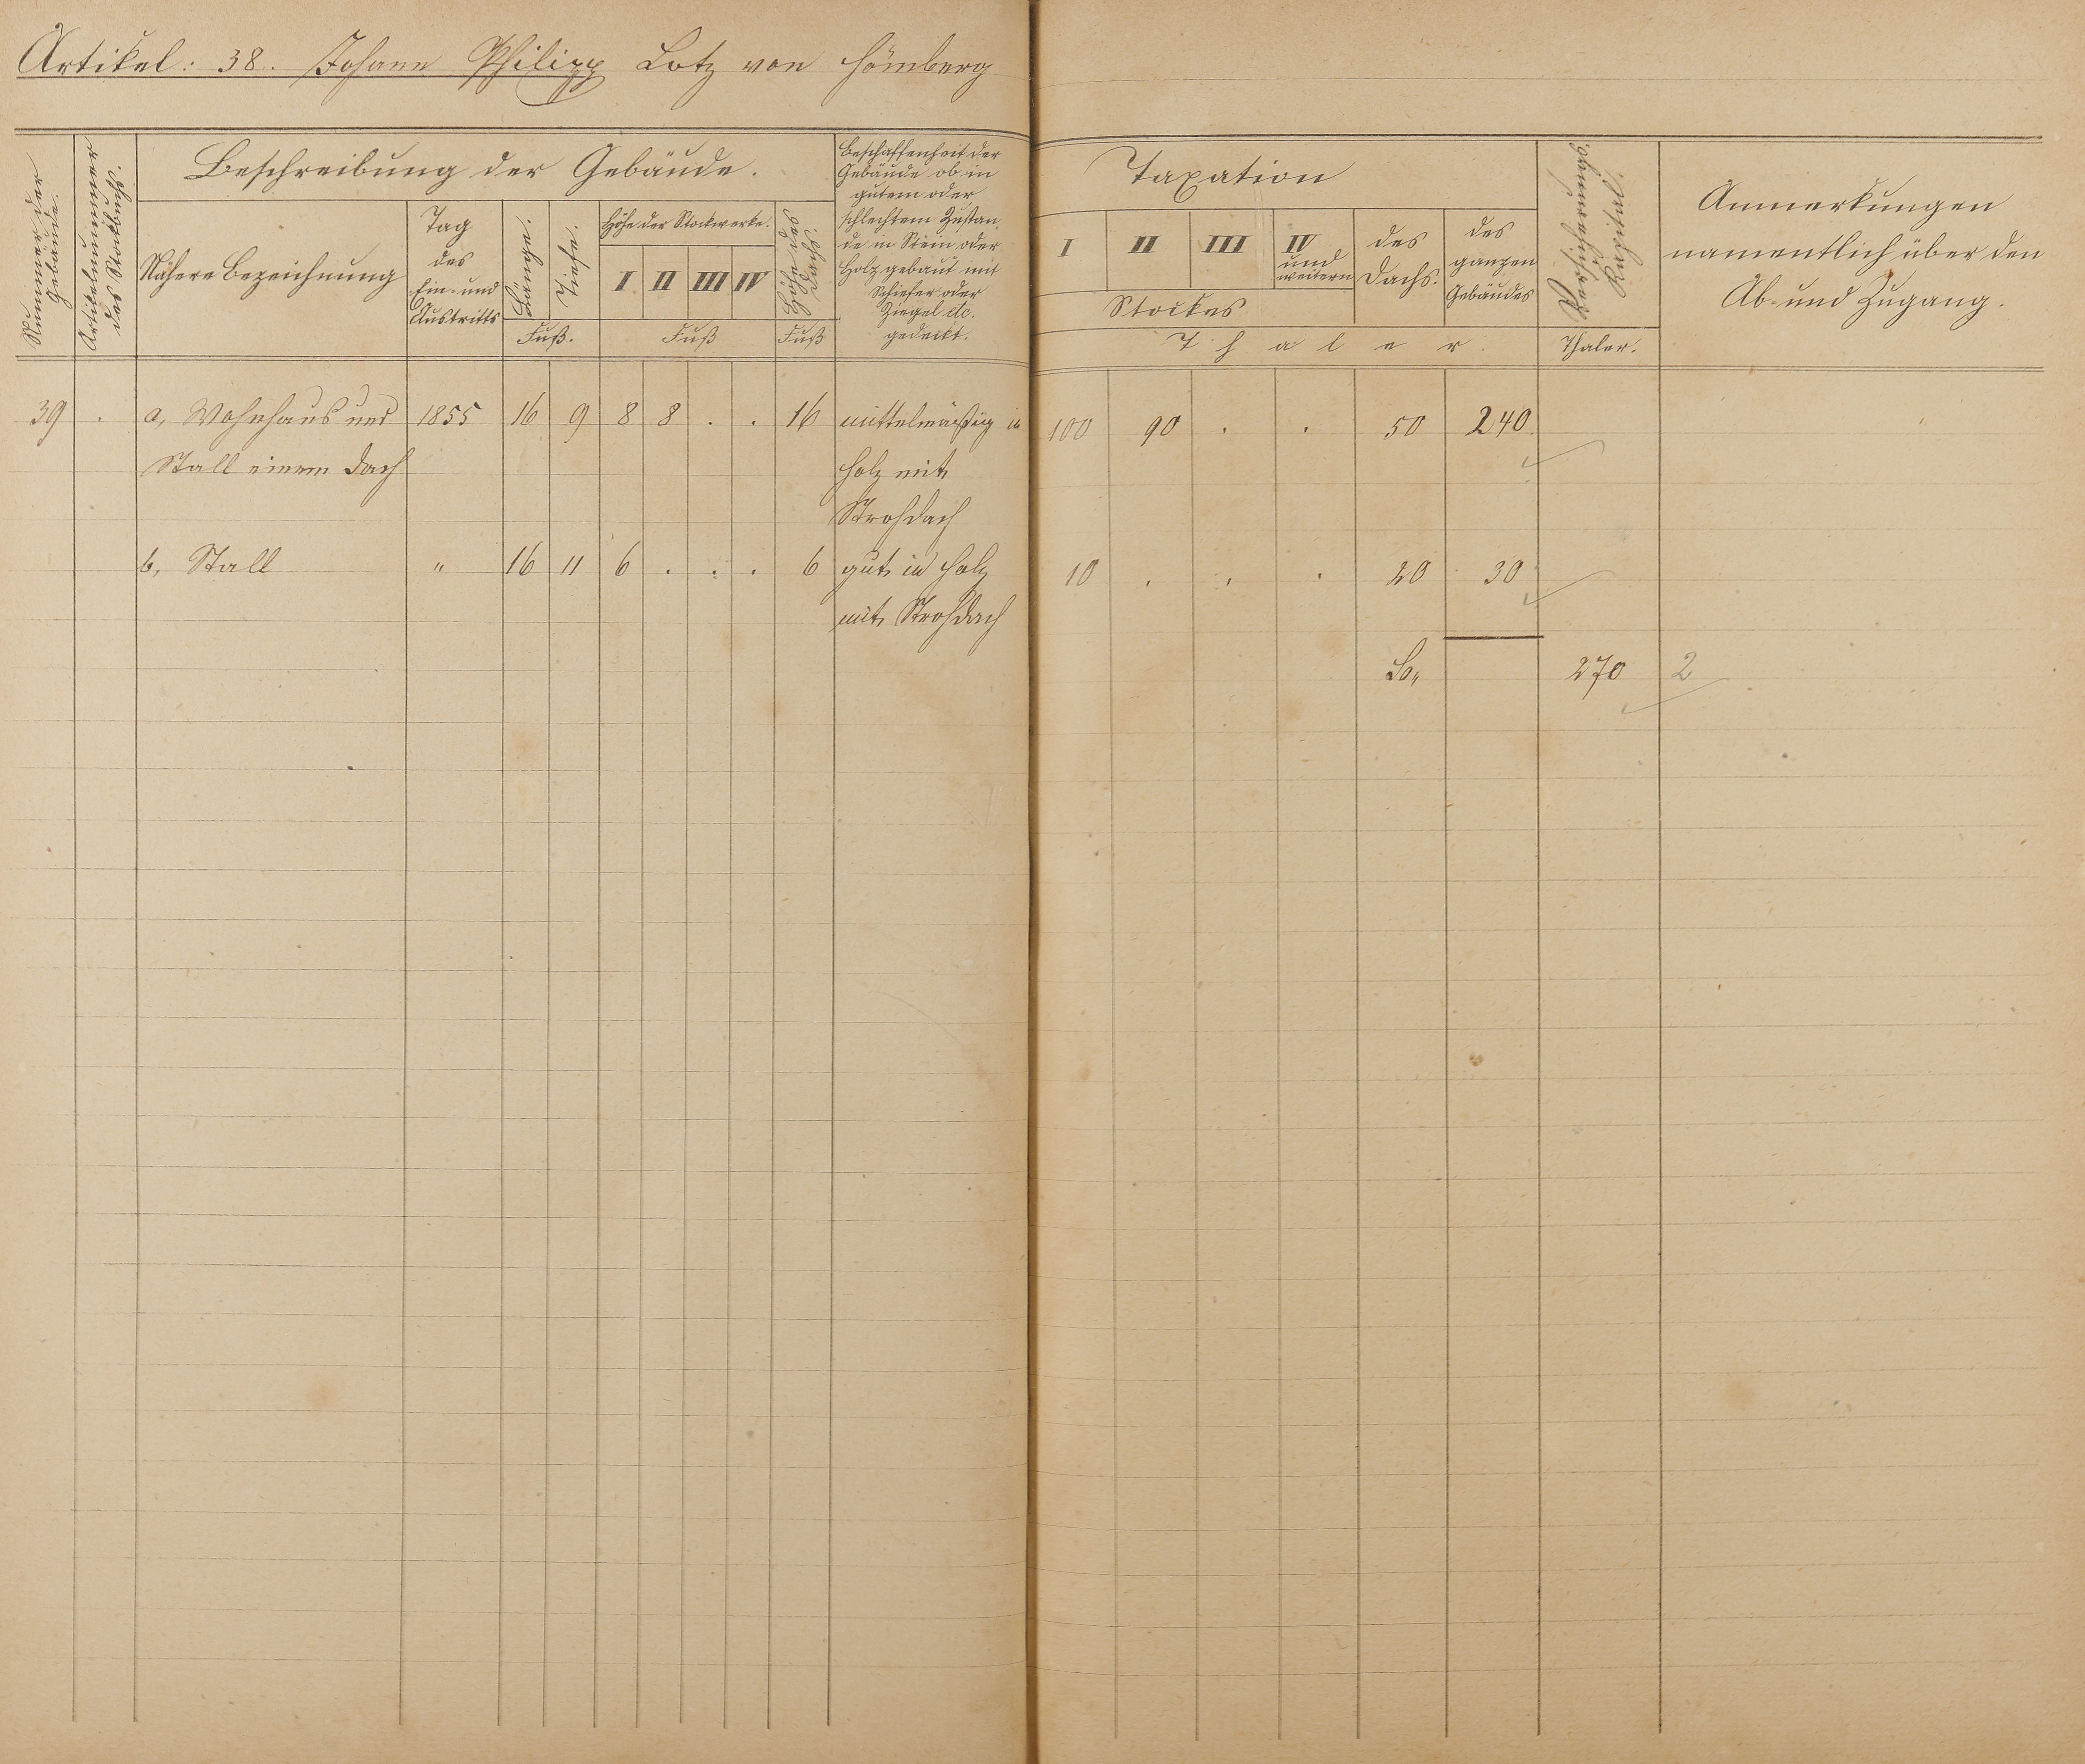 Artikel: 38. Johann Philipp Lotz von Hömberg
Nummer der Gebäude.
Artikelnummer des Stockbuchs.
Beschreibung der Gebäude.
Nähere Bezeichnung
Tag
des
Ein- und
Austritts
Länge.
Tiefe.
Fuß.
Höhe der Stockwerke.
I II III IV
Fuß
Höhe des Dachs.
Fuß
Beschaffenheit der
Gebäude ob in
gutem oder
schlechtem Zustan-
de in Stein oder
Holz gebaut mit
Schiefer oder
Ziegel etc.
gedeckt.
Taxation
I II III IV
und
weitern
Stockes
des
Dachs.
des
ganzen
Gebäudes
Thaler
Versicherungs-
Kapital.
Thaler.
Anmerkungen
namentlich über den
Ab- und Zugang.
39 . a, Wohnhaus und 1855 16 9 8 8 . . 16 mittelmäßig in 100 90 . . 50 240
Stall einem Dach Holz mit
Strohdach
b, Stall " 16 11 6 . . . 6 gut in Holz 10 . . . 20 30
mit Strohdach
Sa, 270 2